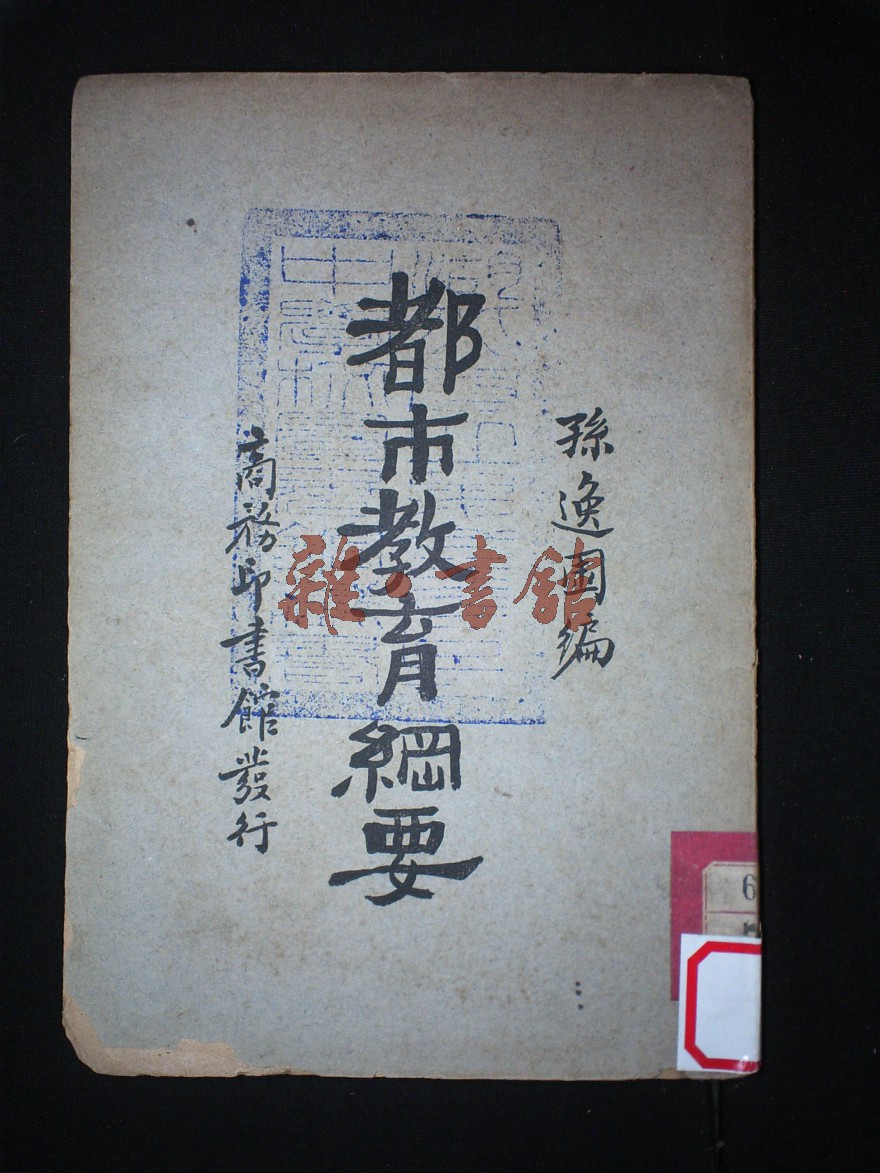 孫逸園編
都市教育綱要
商務印書館發行
雜·書館
6